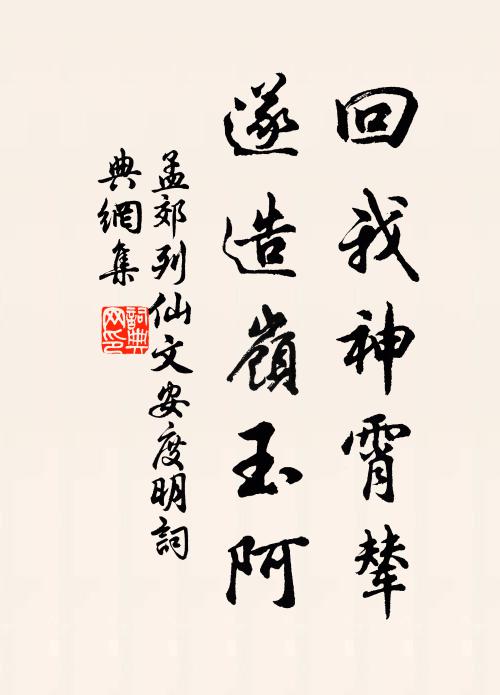 回我神霄輦
遂造嶺玉阿
孟郊列仙文安度明詞
典網集
詞典网印